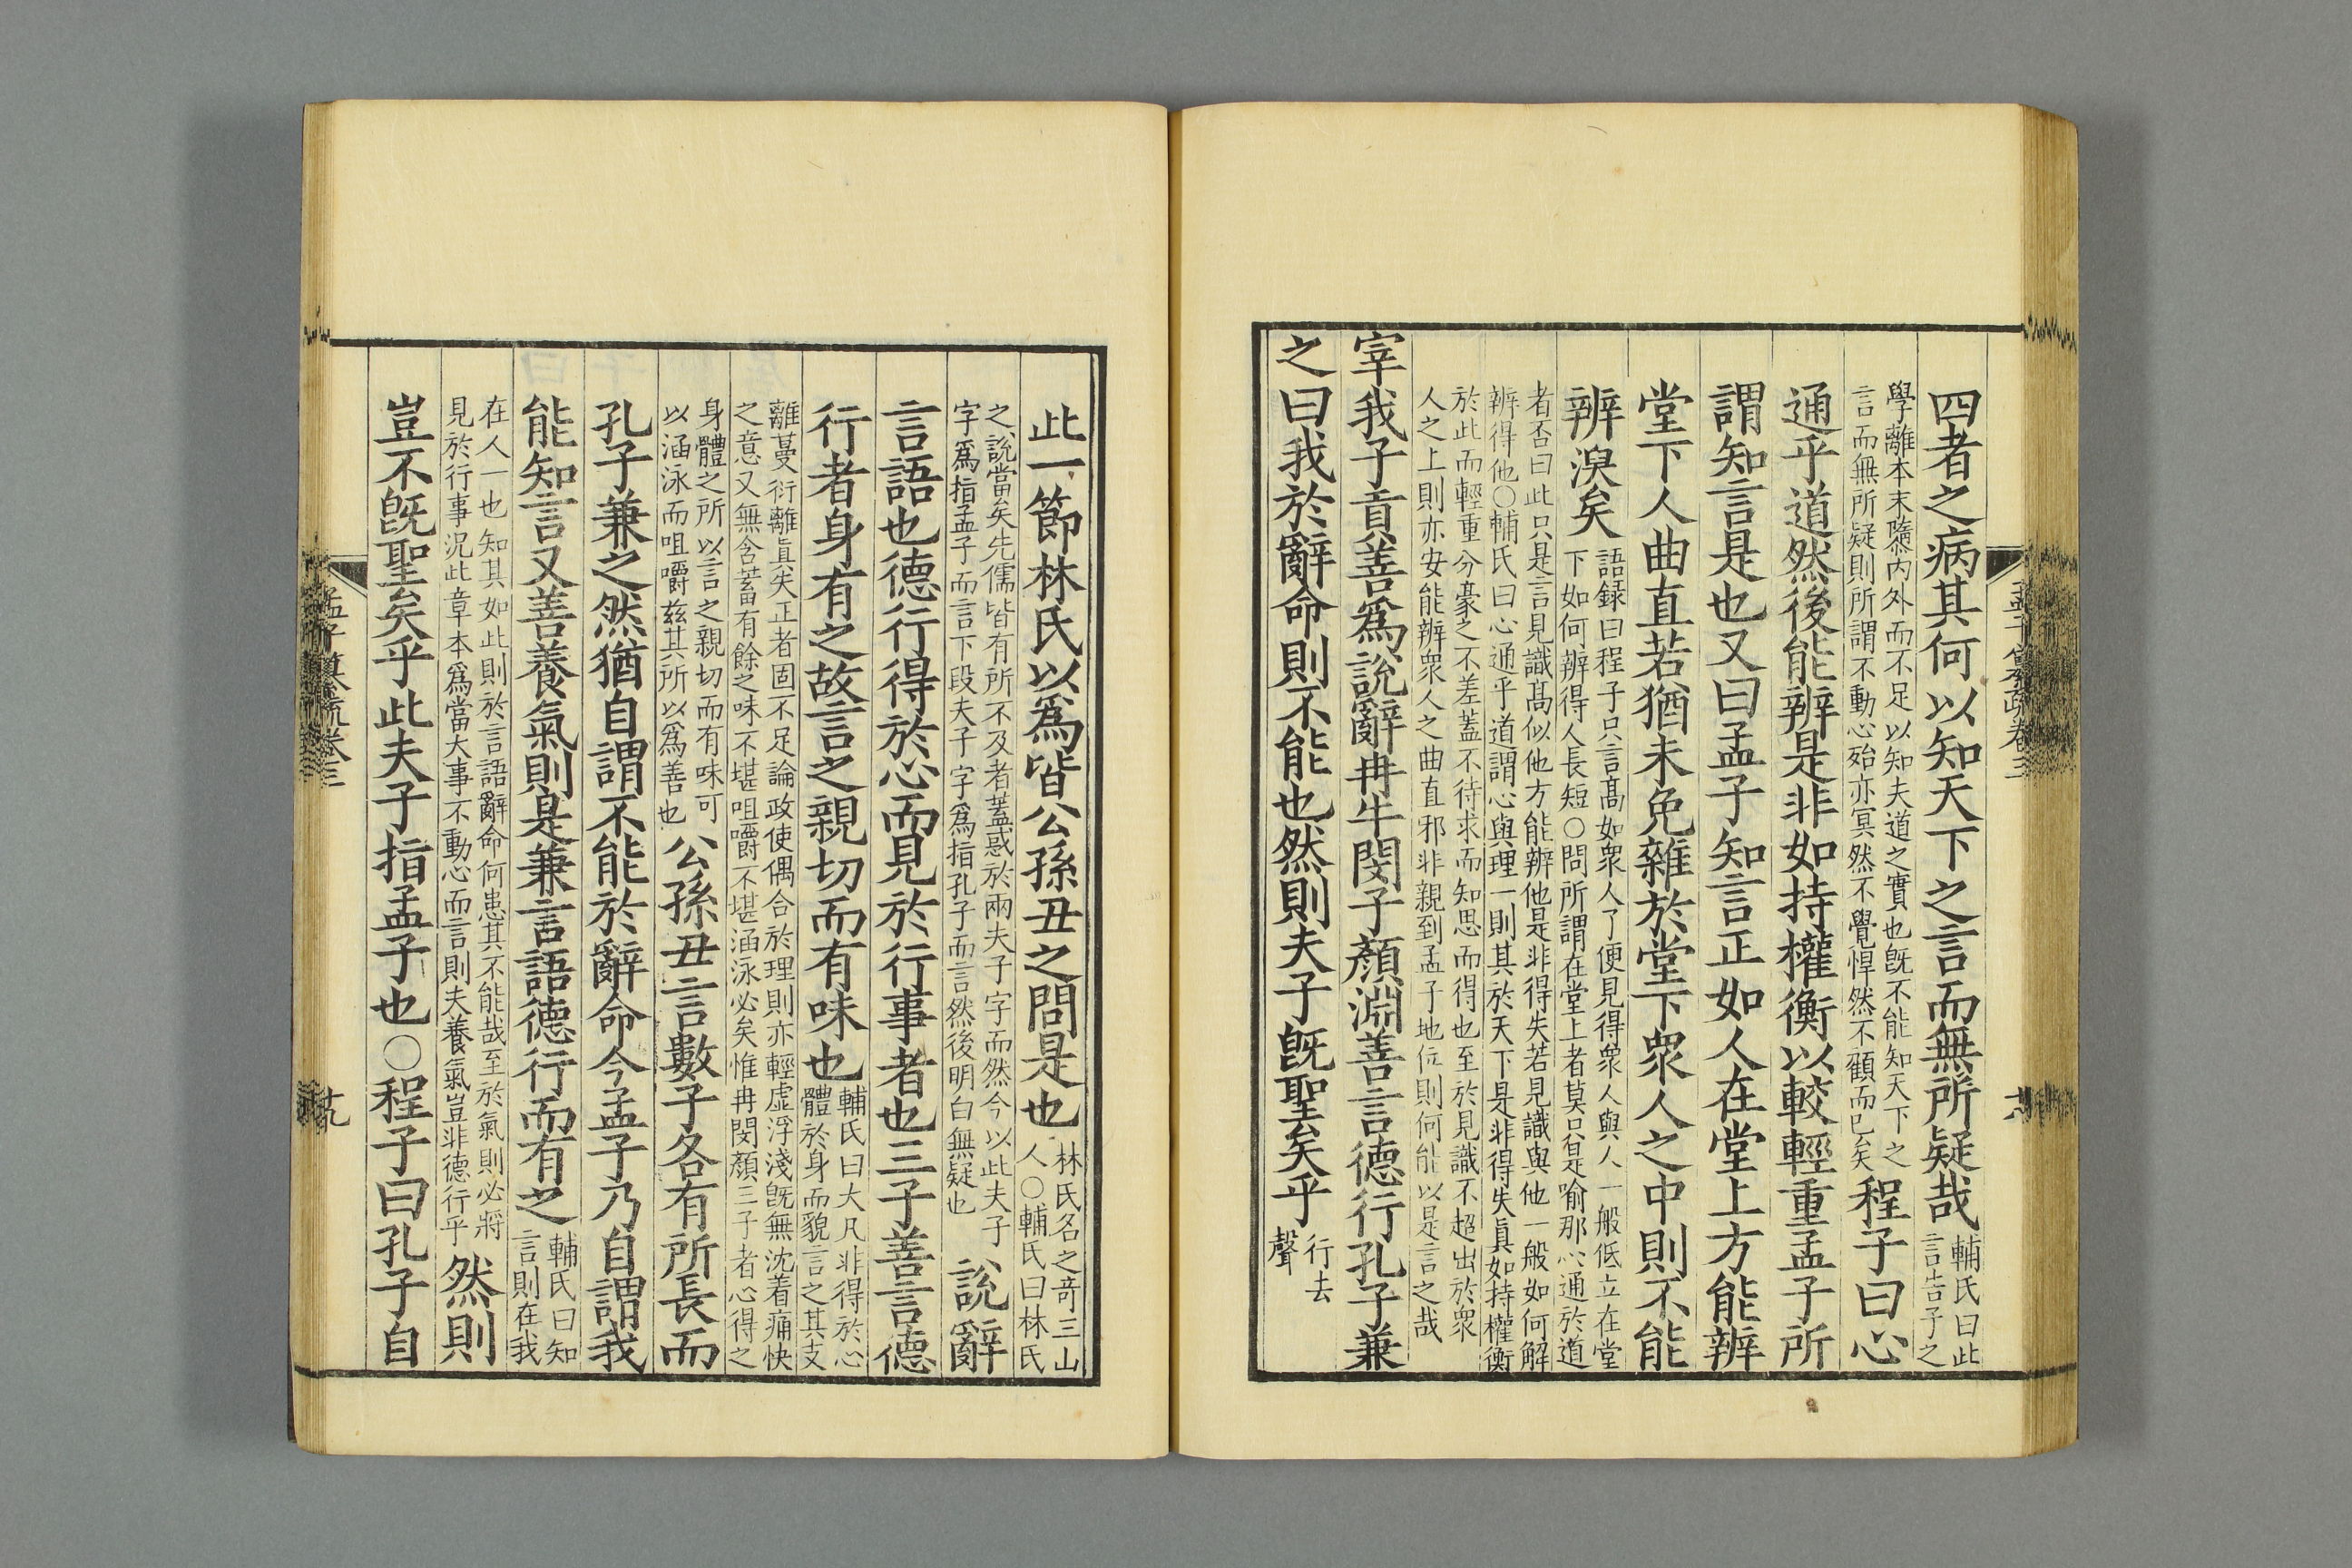 四者之病其何以知天下之言而無所疑哉輔氏曰此言告子之
學離本末隳內外而不足以知夫道之實也旣不能知天下之言而無所疑則所謂不動心殆亦冥然不覺悍然不顧而已矣程子曰心
通乎道然後能辨是非如持權衡以較輕重孟子所
謂知言是也又曰孟子知言正如人在堂上方能辨
堂下人曲直若猶未免雜於堂下衆人之中則不能
辨決矣語録曰程子只言高如衆人了便見得衆人與人一般低立在堂下如何辨得人長短○問所謂在堂上者莫只是喻那心通於道
者否曰此只是言見識高似他方能辨他是非得失若見識與他一般如何解辨得他○輔氏曰心通乎道謂心與理一則其於天下是非得失眞如持權衡
於此而輕重分豪之不差蓋不待求而知思而得也至於見識不超出於衆人之上則亦安能辨衆人之曲直邪非親到孟子地位則何能以是言之哉
宰我子貢善爲說辭冉牛閔子顏淵善言德行孔子兼
之曰我於辭命則不能也然則夫子旣聖矣乎行去聲
孟子纂疏卷三
十八
此一節林氏以爲皆公孫丑之問是也林氏名之奇三山人○輔氏曰林氏
之說當矣先儒皆有所不及者蓋惑於兩夫子字而然今以此夫子字爲指孟子而言下段夫子字爲指孔子而言然後明白無疑也說辭
言語也德行得於心而見於行事者也三子善言德
行者身有之故言之親切而有味也輔氏曰大凡非得於心體於身而貌言之其支
離蔓衍離眞失正者固不足論政使偶合於理則亦輕虛浮淺旣無沈着痛快之意又無含蓄有餘之味不堪咀嚼不堪涵泳必矣惟冉閔顏三子者心得之
身體之所以言之親切而有味可以涵泳而咀嚼兹其所以爲善也公孫丑言數子各有所長而
孔子兼之然猶自謂不能於辭命今孟子乃自謂我
能知言又善養氣則是兼言語德行而有之輔氏曰知言則在我
在人一也知其如此則於言語辭命何患其不能哉至於氣則必將見於行事況此章本爲當大事不動心而言則夫養氣豈非德行乎然則
豈不旣聖矣乎此夫子指孟子也○程子曰孔子自
孟子纂疏卷三
十九